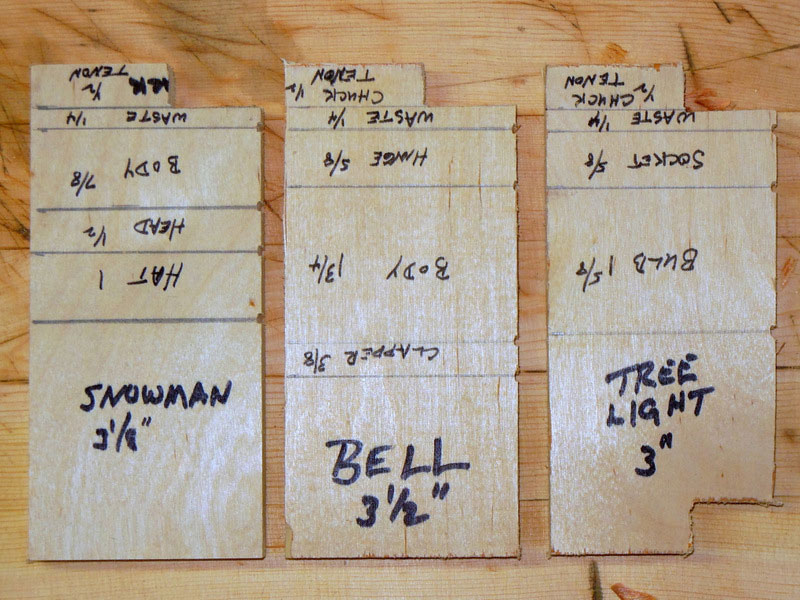 SNOWMAN
3 1/8"
HAT 1
HEAD 1/2
BODY 7/8
WASTE 1/4
1/2
TENON
BELL
3 1/2"
CLAPPER 3/8
BODY 1 3/4
HINGE 5/8
WASTE 1/4
CHUCK 1/2
TENON
TREE
LIGHT
3"
BULB 1 5/8
SOCKET 5/8
WASTE 1/4
1/2 CHUCK
TENON